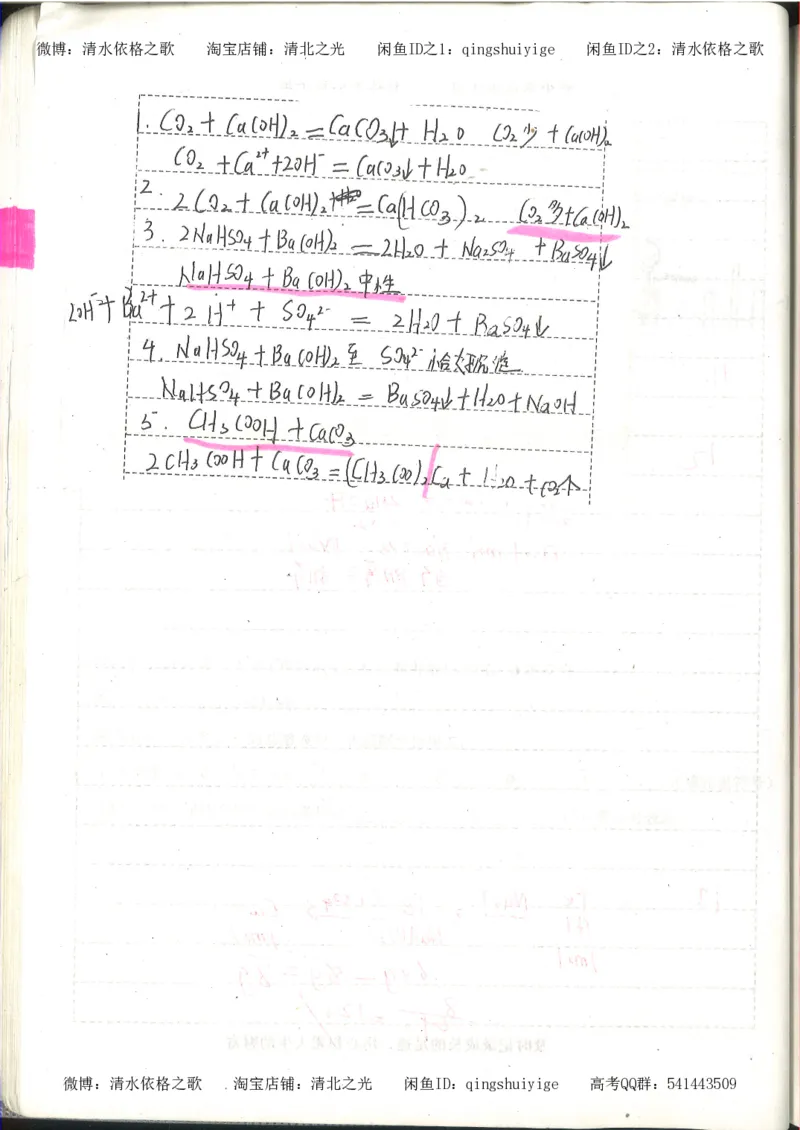 微博：清水依格之歌 淘宝店铺：清北之光 闲鱼ID之1：qingshuiyige 闲鱼ID之2：清水依格之歌
1. CO₂ + Ca(OH)₂ = CaCO₃↓ + H₂O CO₂少 + Ca(OH)₂
CO₂ + Ca²⁺ + 2OH⁻ = CaCO₃↓ + H₂O
2. 2CO₂ + Ca(OH)₂ = Ca(HCO₃)₂ CO₂多 + Ca(OH)₂
3. 2NaHSO₄ + Ba(OH)₂ = 2H₂O + Na₂SO₄ + BaSO₄↓
NaHSO₄ + Ba(OH)₂ 中性
2OH⁻ + Ba²⁺ + 2H⁺ + SO₄²⁻ = 2H₂O + BaSO₄↓
4. NaHSO₄ + Ba(OH)₂ 至 SO₄²⁻ 恰好沉淀
NaHSO₄ + Ba(OH)₂ = BaSO₄↓ + H₂O + NaOH
5. CH₃COOH + CaCO₃
2CH₃COOH + CaCO₃ = (CH₃COO)₂Ca + H₂O + CO₂↑
微博：清水依格之歌 淘宝店铺：清北之光 闲鱼ID：qingshuiyige 高考QQ群：541443509